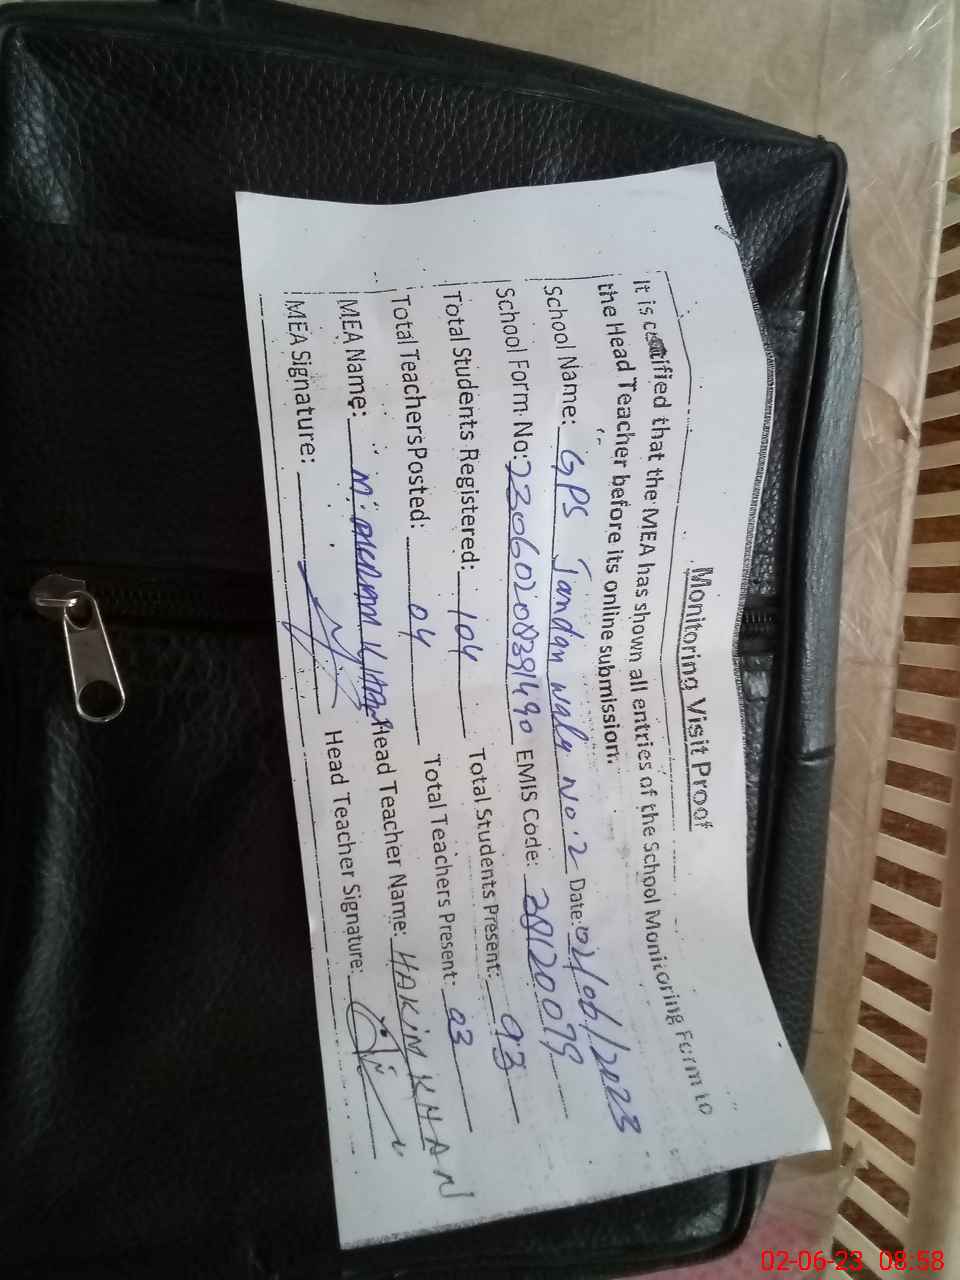 Monitoring Visit Proof
It is certified that the MEA has shown all entries of the School Monitoring Form to
the Head Teacher before its online submission.
School Name: GPS Jandan waly No.2 Date: 02/06/2023
School Form No: 23060208391490 EMIS Code: 38120079
Total Students Registered: 104 Total Students Present: 93
Total Teachers Posted: 04 Total Teachers Present: 03
MEA Name: M. AKRAM KHAN Head Teacher Name: HAKIM KHAN
MEA Signature: Head Teacher Signature:
02-06-23 08:58